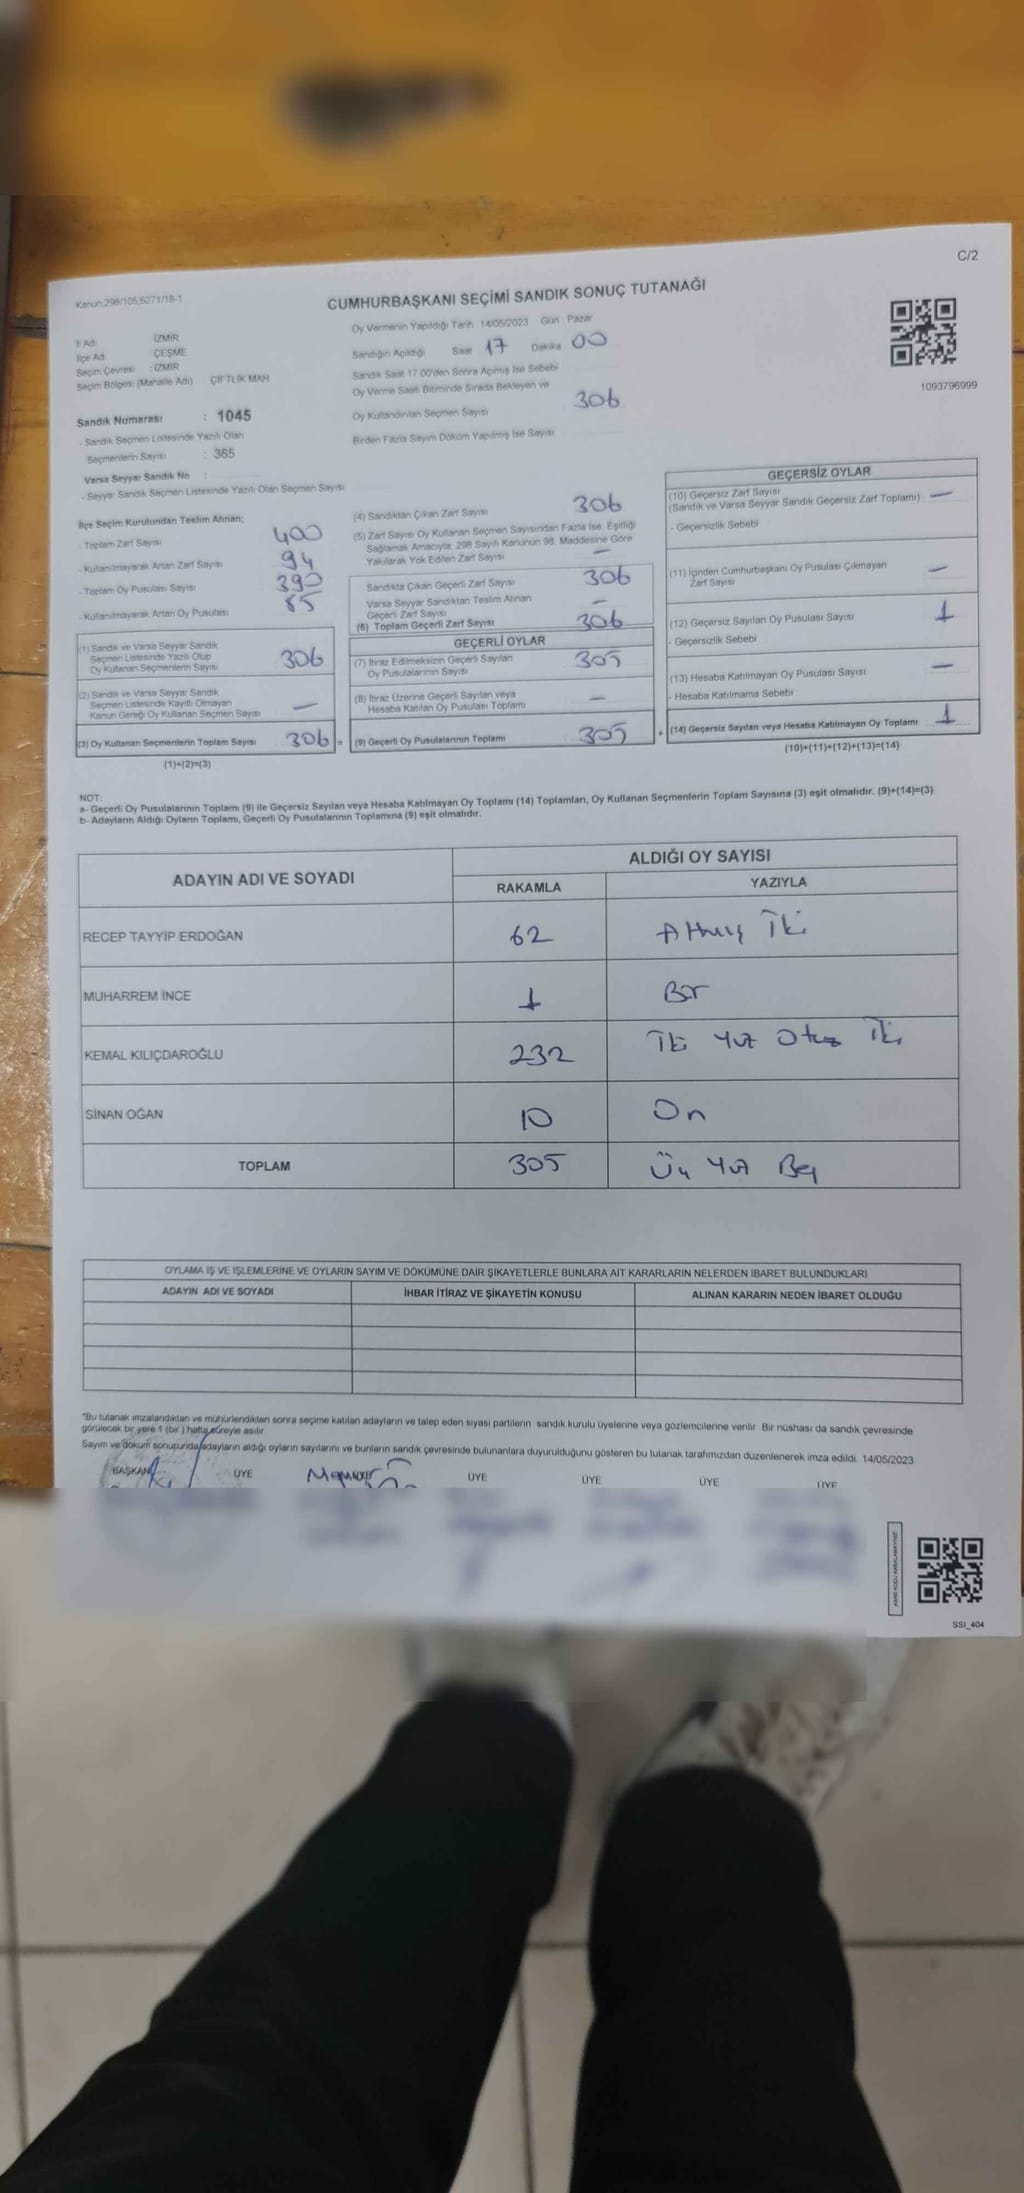 C/2
Kanun:298/105;6271/18-1
CUMHURBAŞKANI SEÇİMİ SANDIK SONUÇ TUTANAĞI
İl Adı : İZMİR
İlçe Adı : ÇEŞME
Seçim Çevresi : İZMİR
Seçim Bölgesi (Mahalle Adı) ÇİFTLİK MAH
Sandık Numarası : 1045
- Sandık Seçmen Listesinde Yazılı Olan
Seçmenlerin Sayısı : 365
Varsa Seyyar Sandık No :
- Seyyar Sandık Seçmen Listesinde Yazılı Olan Seçmen Sayısı
Oy Vermenin Yapıldığı Tarih 14/05/2023 Gün : Pazar
Sandığın Açıldığı Saat 17 Dakika 00
Sandık Saat 17.00'den Sonra Açılmış İse Sebebi
Oy Verme Saati Bitiminde Sırada Bekleyen ve
Oy Kullandırılan Seçmen Sayısı 306
Birden Fazla Sayım Döküm Yapılmış İse Sayısı
1093796999
İlçe Seçim Kurulundan Teslim Alınan;
- Toplam Zarf Sayısı 400
- Kullanılmayarak Artan Zarf Sayısı 94
- Toplam Oy Pusulası Sayısı 390
- Kullanılmayarak Artan Oy Pusulası 85
(1) Sandık ve Varsa Seyyar Sandık
Seçmen Listesinde Yazılı Olup
Oy Kullanan Seçmenlerin Sayısı 306
(2) Sandık ve Varsa Seyyar Sandık
Seçmen Listesinde Kayıtlı Olmayan
Kanun Gereği Oy Kullanan Seçmen Sayısı —
(3) Oy Kullanan Seçmenlerin Toplam Sayısı 306 =
(1)+(2)=(3)
(4) Sandıktan Çıkan Zarf Sayısı 306
(5) Zarf Sayısı Oy Kullanan Seçmen Sayısından Fazla İse, Eşitliği
Sağlamak Amacıyla, 298 Sayılı Kanunun 98. Maddesine Göre
Yakılarak Yok Edilen Zarf Sayısı —
Sandıkta Çıkan Geçerli Zarf Sayısı 306
Varsa Seyyar Sandıktan Teslim Alınan
Geçerli Zarf Sayısı —
(6) Toplam Geçerli Zarf Sayısı 306
GEÇERLİ OYLAR
(7) İtiraz Edilmeksizin Geçerli Sayılan
Oy Pusulalarının Sayısı 305
(8) İtiraz Üzerine Geçerli Sayılan veya
Hesaba Katılan Oy Pusulası Toplamı —
(9) Geçerli Oy Pusulalarının Toplamı 305 +
GEÇERSİZ OYLAR
(10) Geçersiz Zarf Sayısı
(Sandık ve Varsa Seyyar Sandık Geçersiz Zarf Toplamı) —
- Geçersizlik Sebebi
(11) İçinden Cumhurbaşkanı Oy Pusulası Çıkmayan
Zarf Sayısı —
(12) Geçersiz Sayılan Oy Pusulası Sayısı 1
- Geçersizlik Sebebi
(13) Hesaba Katılmayan Oy Pusulası Sayısı —
- Hesaba Katılmama Sebebi
(14) Geçersiz Sayılan veya Hesaba Katılmayan Oy Toplamı : 1
(10)+(11)+(12)+(13)=(14)
NOT:
a- Geçerli Oy Pusulalarının Toplamı (9) ile Geçersiz Sayılan veya Hesaba Katılmayan Oy Toplamı (14) Toplamları, Oy Kullanan Seçmenlerin Toplam Sayısına (3) eşit olmalıdır. (9)+(14)=(3)
b- Adayların Aldığı Oyların Toplamı, Geçerli Oy Pusulalarının Toplamına (9) eşit olmalıdır.
ADAYIN ADI VE SOYADI
ALDIĞI OY SAYISI
RAKAMLA YAZIYLA
RECEP TAYYİP ERDOĞAN 62 Altmış İki
MUHARREM İNCE 1 Bir
KEMAL KILIÇDAROĞLU 232 İki Yüz Otuz İki
SİNAN OĞAN 10 On
TOPLAM 305 Üç Yüz Beş
OYLAMA İŞ VE İŞLEMLERİNE VE OYLARIN SAYIM VE DÖKÜMÜNE DAİR ŞİKAYETLERLE BUNLARA AİT KARARLARIN NELERDEN İBARET BULUNDUKLARI
ADAYIN ADI VE SOYADI İHBAR İTİRAZ VE ŞİKAYETİN KONUSU ALINAN KARARIN NEDEN İBARET OLDUĞU
*Bu tutanak imzalandıktan ve mühürlendikten sonra seçime katılan adayların ve talep eden siyasi partilerin sandık kurulu üyelerine veya gözlemcilerine verilir. Bir nüshası da sandık çevresinde
görülecek bir yere 1 (bir) hafta süreyle asılır.
Sayım ve döküm sonucunda adayların aldığı oyların sayılarını ve bunların sandık çevresinde bulunanlara duyurulduğunu gösteren bu tutanak tarafımızdan düzenlenerek imza edildi. 14/05/2023
BAŞKAN ÜYE ÜYE ÜYE ÜYE ÜYE
SSI_404